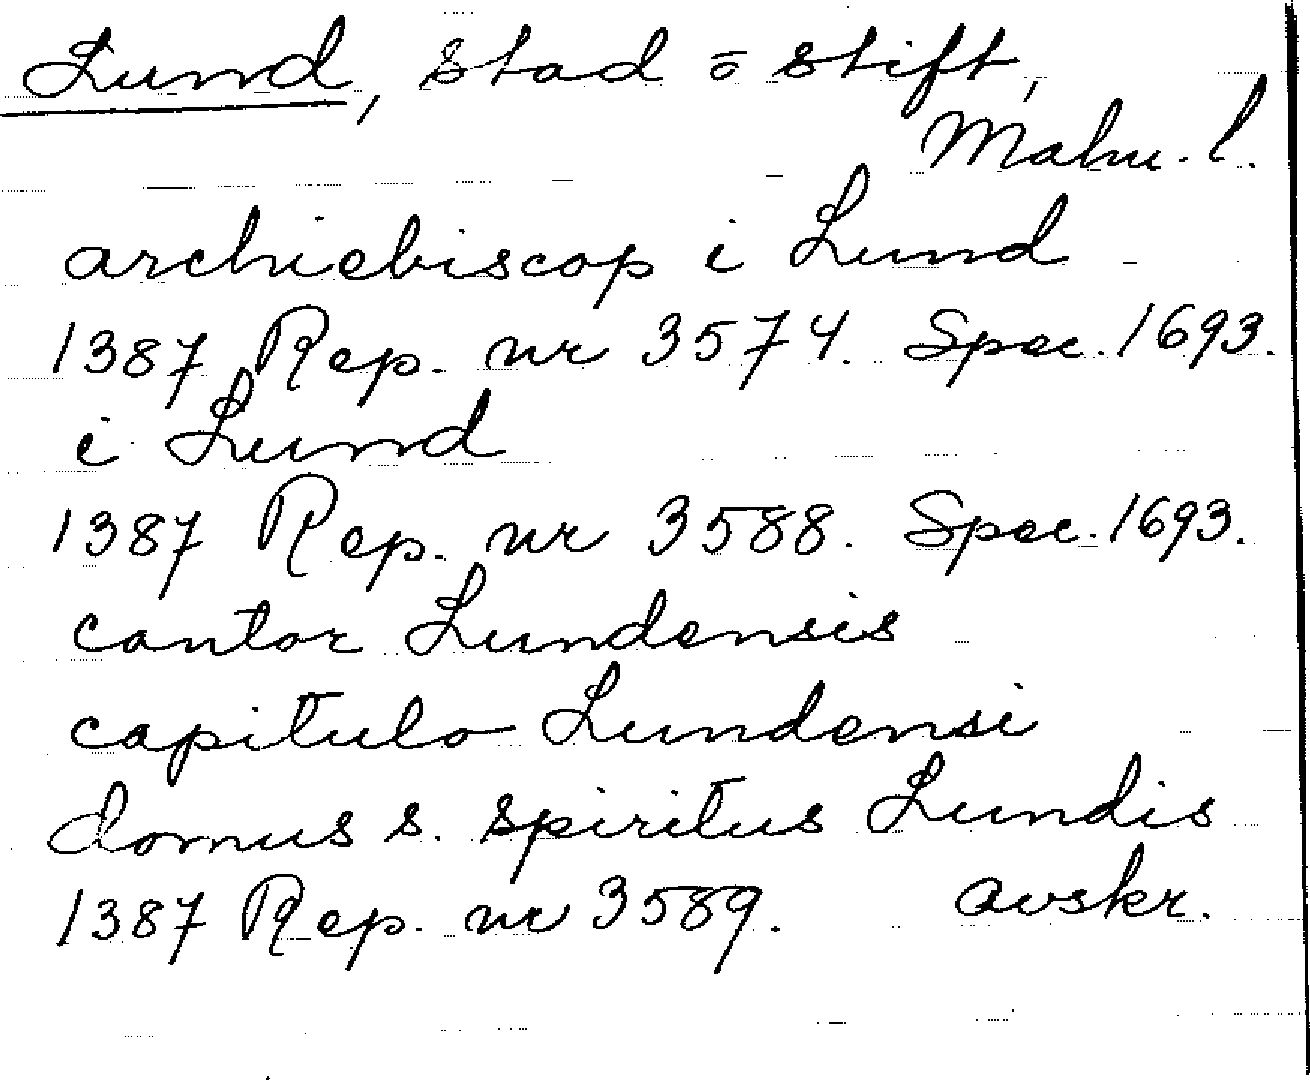 Lund, stad o stift,
Malm. l.
archiebiscop i Lund
1387 Rep. nr 3574. Spec. 1693.
i Lund
1387 Rep. nr 3588. Spec. 1693.
cantor Lundensis
capitulo Lundensi
domus s. spiritus Lundis
1387 Rep. nr 3589. avskr.